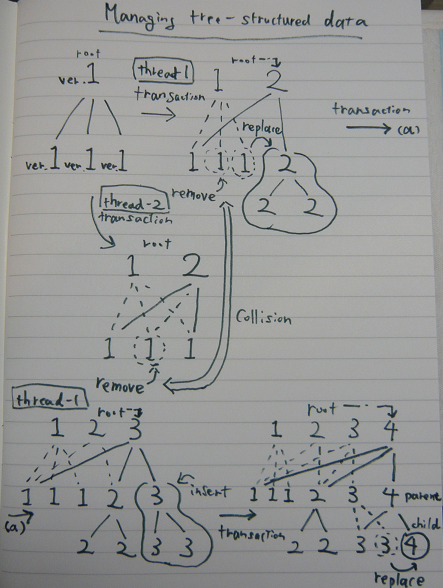 Managing tree-structured data
root
ver. 1
ver.1 ver.1 ver.1
thread-1
transaction
root
1 2
replace
1 1 1 2
2 2
remove
transaction
(a)
thread-2
transaction
root
1 2
1 1 1
remove
Collision
thread-1
root
1 2 3
1 1 1 2 3
insert
(a)
2 2 3 3
transaction
root
1 2 3 4
1 1 1 2 3 4 parent
child
2 2 3 3 4
replace